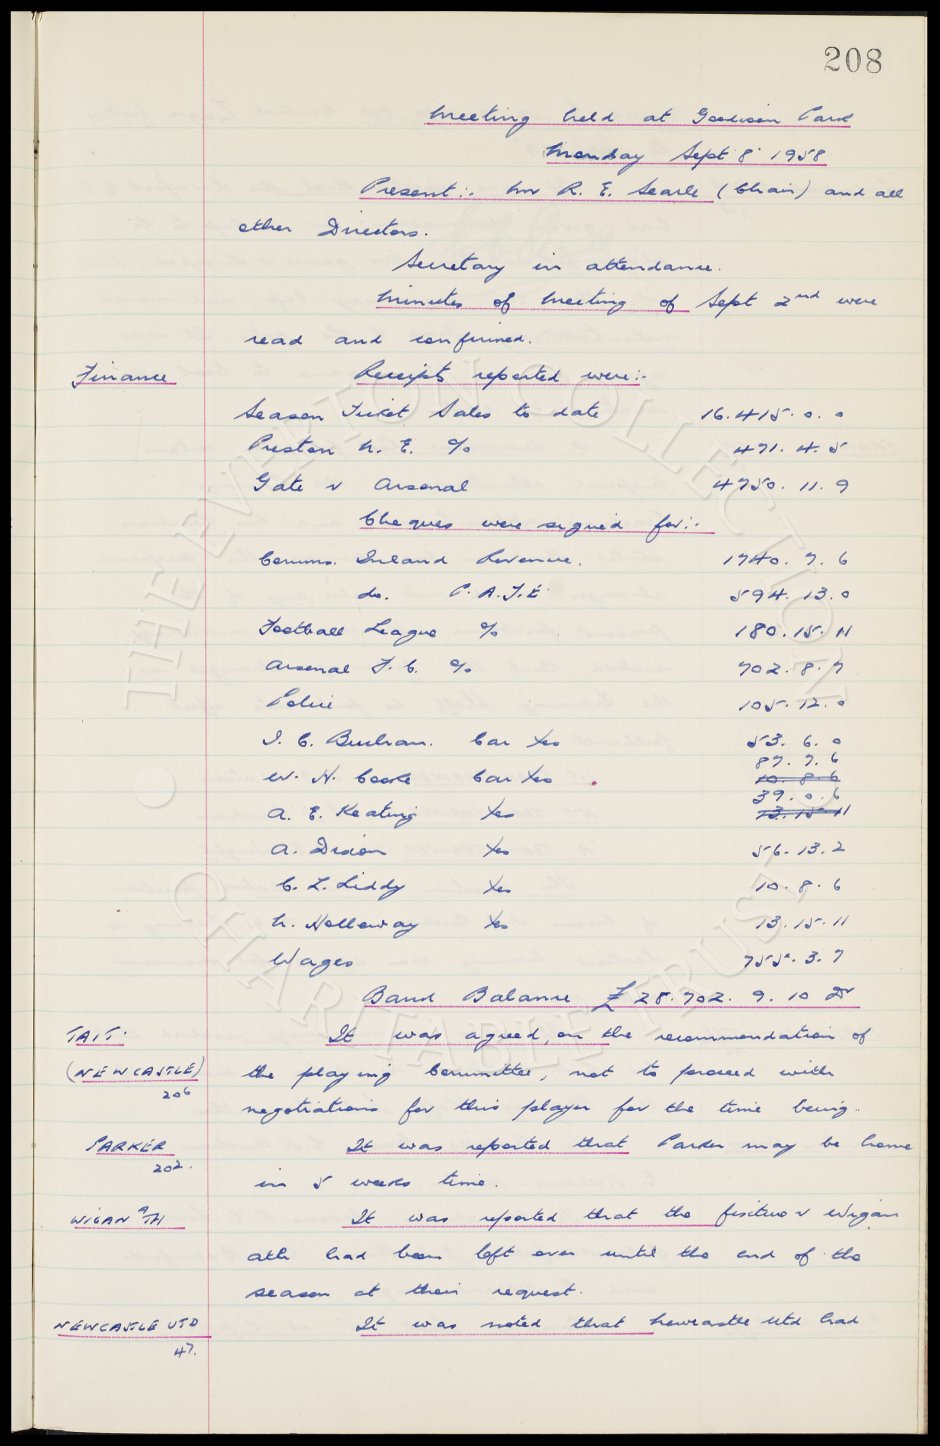 208
Meeting held at Goodison Park
Monday Sept 8. 1958
Present:- Mr R. E. Searle (Chair) and all
other Directors.
Secretary in attendance.
Minutes of Meeting of Sept 2nd were
read and confirmed.
Finance Receipts reported were:-
Season Ticket Sales to date 16.415. 0. 0
Preston N. E. % 471. 4. 5
Gate v Arsenal 4750. 11. 9
Cheques were signed for:-
Comms. Inland Revenue. 1740. 7. 6
do. P.A.Y.E. 594. 13. 0
Football League % 180. 15. 11
Arsenal F. C. % 702. 8. 7
Police 105. 12. 0
I. C. Buchan. Car Xes 53. 6. 0
87. 7. 6
W. H. Cooke Car Xes 10. 8. 6
39. 0. 6
A. E. Keating Xes 13. 15. 11
A. Dixon Xes 56. 13. 2
C. L. Liddy Xes 10. 8. 6
h. Holloway Xes 13. 15. 11
Wages 755. 3. 7
Bank Balance £28.702. 9. 10 Dr
TAIT. It was agreed, on the recommendation of
(NEWCASTLE) the playing Committee, not to proceed with
206
negotiations for this player for the time being.
PARKER It was reported that Parker may be home
202.
in 5 weeks time.
WIGAN ATH It was reported that the fixture v Wigan
Ath had been left over until the end of the
season at their request.
NEWCASTLE UTD It was noted that Newcastle Utd had
47.
THE EVERTON COLLECTION
CHARITABLE TRUST